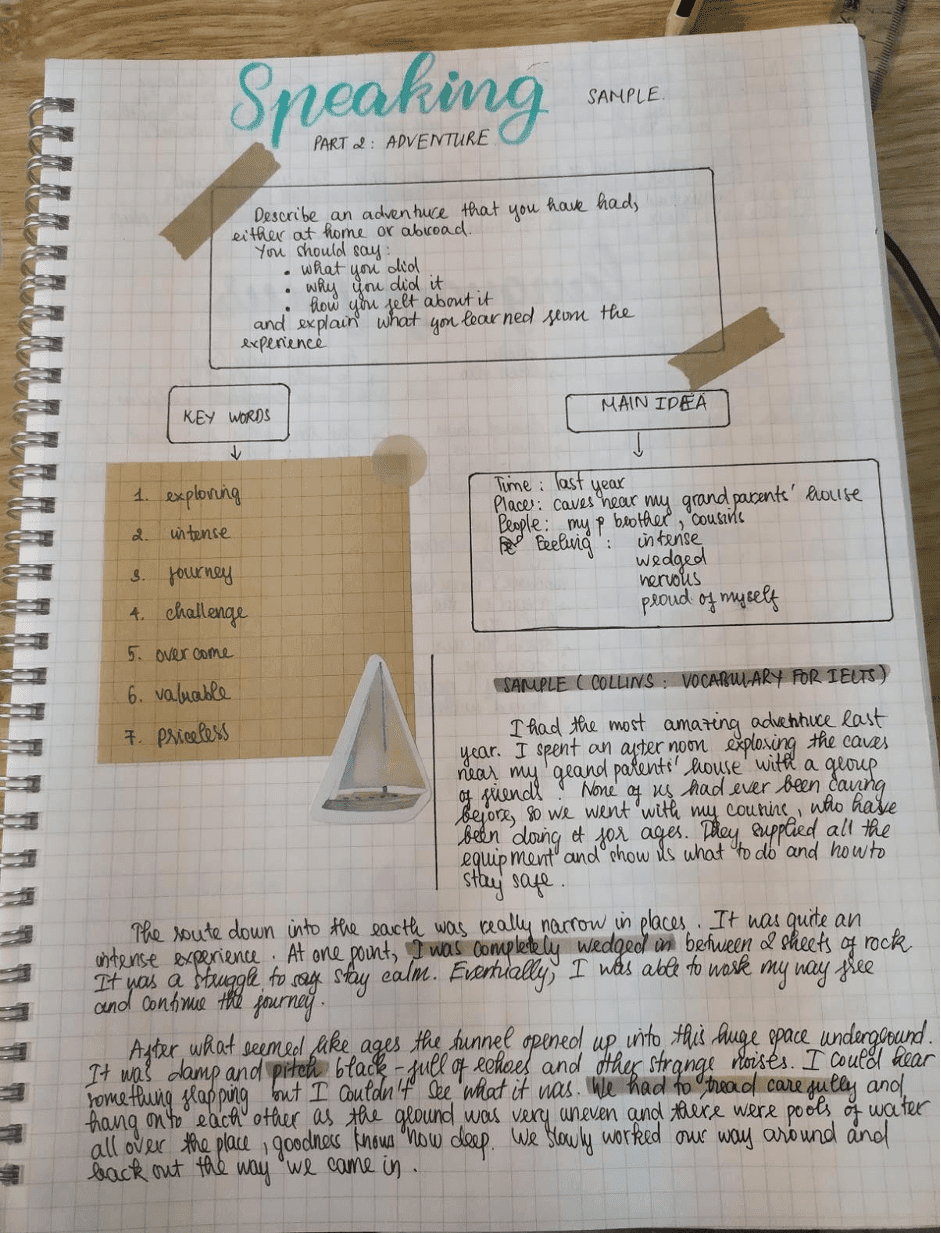 Speaking SAMPLE.
PART 2: ADVENTURE
Describe an adventure that you have had,
either at home or abroad.
You should say:
• what you did
• why you did it
• how you felt about it
and explain what you learned from the
experience
KEY WORDS
1. exploring
2. intense
3. journey
4. challenge
5. overcome
6. valuable
7. priceless
MAIN IDEA
Time: last year
Places: caves near my grandparents' house
People: my brother, cousins
Feeling: intense
wedged
nervous
proud of myself
SAMPLE (COLLINS: VOCABULARY FOR IELTS)
I had the most amazing adventure last
year. I spent an afternoon exploring the caves
near my grandparents' house with a group
of friends. None of us had ever been caving
before, so we went with my cousins, who have
been doing it for ages. They supplied all the
equipment and show us what to do and how to
stay safe.
The route down into the earth was really narrow in places. It was quite an
intense experience. At one point, I was completely wedged in between 2 sheets of rock
It was a struggle to stay calm. Eventually, I was able to work my way free
and continue the journey.
After what seemed like ages the tunnel opened up into this huge space underground.
It was damp and pitch black - full of echoes and other strange noises. I could hear
something flapping but I couldn't see what it was. We had to tread carefully and
hang onto each other as the ground was very uneven and there were pools of water
all over the place, goodness knows how deep. We slowly worked our way around and
back out the way we came in.